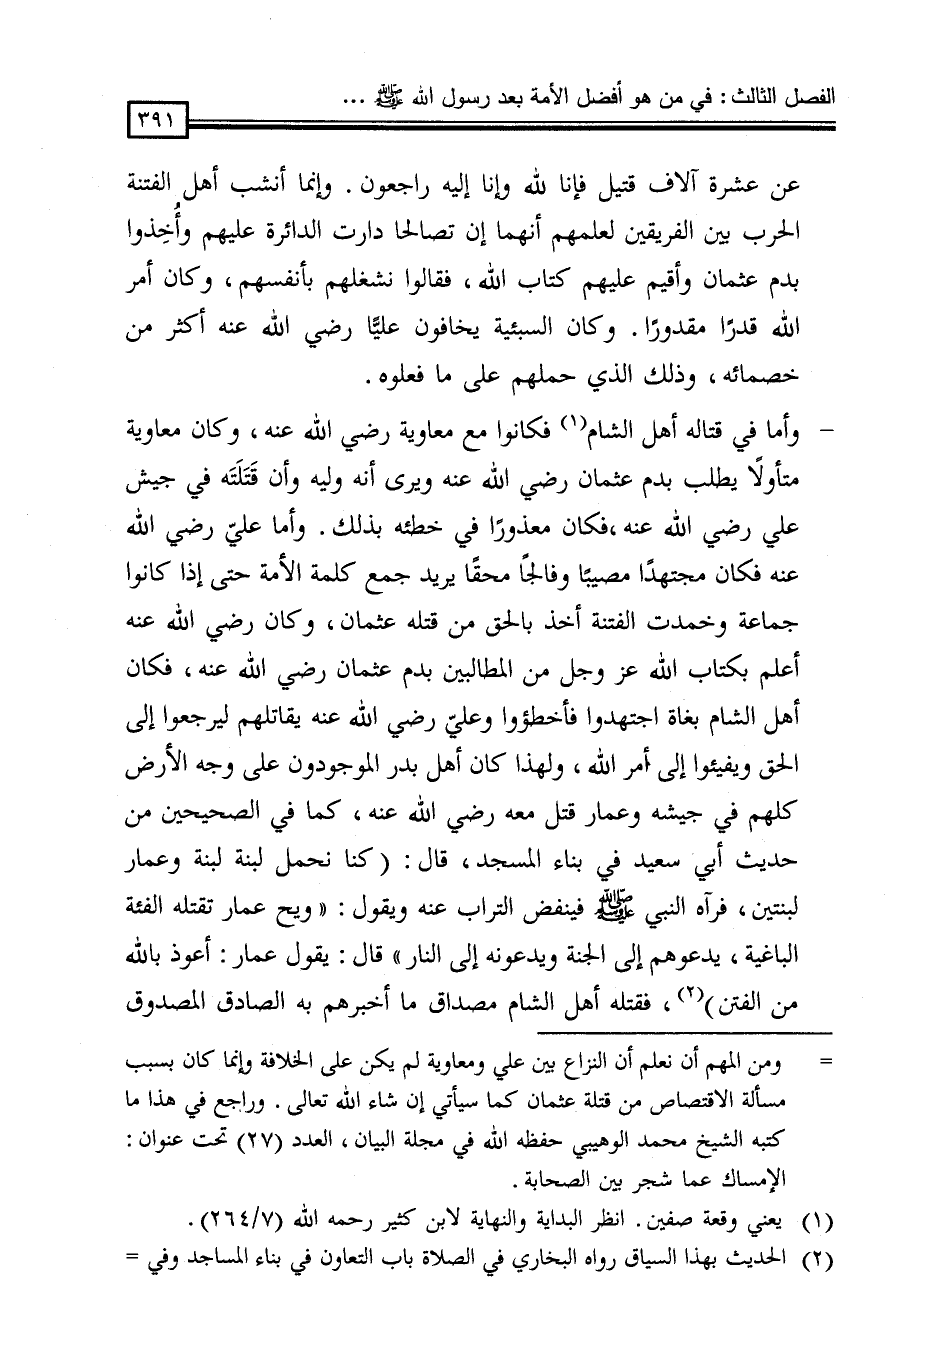 الفصل الثالث : في من هو أفضل الأمة بعد رسول الله ﷺ ...
٣٩١
عن عشرة آلاف قتيل فإنا لله وإنا إليه راجعون . وإنما أنشب أهل الفتنة
الحرب بين الفريقين لعلمهم أنهما إن تصالحا دارت الدائرة عليهم وأُخِذوا
بدم عثمان وأقيم عليهم كتاب الله ، فقالوا نشغلهم بأنفسهم ، وكان أمر
الله قدرًا مقدورًا . وكان السبئية يخافون عليًّا رضي الله عنه أكثر من
خصمائه ، وذلك الذي حملهم على ما فعلوه .
– وأما في قتاله أهل الشام(١) فكانوا مع معاوية رضي الله عنه ، وكان معاوية
متأولًا يطلب بدم عثمان رضي الله عنه ويرى أنه وليه وأن قَتَلَتَه في جيش
علي رضي الله عنه ،فكان معذورًا في خطئه بذلك . وأما عليّ رضي الله
عنه فكان مجتهدًا مصيبًا وفالجًا محقًا يريد جمع كلمة الأمة حتى إذا كانوا
جماعة وخمدت الفتنة أخذ بالحق من قتله عثمان ، وكان رضي الله عنه
أعلم بكتاب الله عز وجل من المطالبين بدم عثمان رضي الله عنه ، فكان
أهل الشام بغاة اجتهدوا فأخطؤوا وعليّ رضي الله عنه يقاتلهم ليرجعوا إلى
الحق ويفيئوا إلى أمر الله ، ولهذا كان أهل بدر الموجودون على وجه الأرض
كلهم في جيشه وعمار قتل معه رضي الله عنه ، كما في الصحيحين من
حديث أبي سعيد في بناء المسجد ، قال : ( كنا نحمل لبنة لبنة وعمار
لبنتين ، فرآه النبي ﷺ فينفض التراب عنه ويقول : « ويح عمار تقتله الفئة
الباغية ، يدعوهم إلى الجنة ويدعونه إلى النار » قال : يقول عمار : أعوذ بالله
من الفتن )(٢) ، فقتله أهل الشام مصداق ما أخبرهم به الصادق المصدوق
= ومن المهم أن نعلم أن النزاع بين علي ومعاوية لم يكن على الخلافة وإنما كان بسبب
مسألة الاقتصاص من قتلة عثمان كما سيأتي إن شاء الله تعالى . وراجع في هذا ما
كتبه الشيخ محمد الوهيبي حفظه الله في مجلة البيان ، العدد (٢٧) تحت عنوان :
الإمساك عما شجر بين الصحابة .
(١) يعني وقعة صفين . انظر البداية والنهاية لابن كثير رحمه الله (٢٦٤/٧) .
(٢) الحديث بهذا السياق رواه البخاري في الصلاة باب التعاون في بناء المساجد وفي =